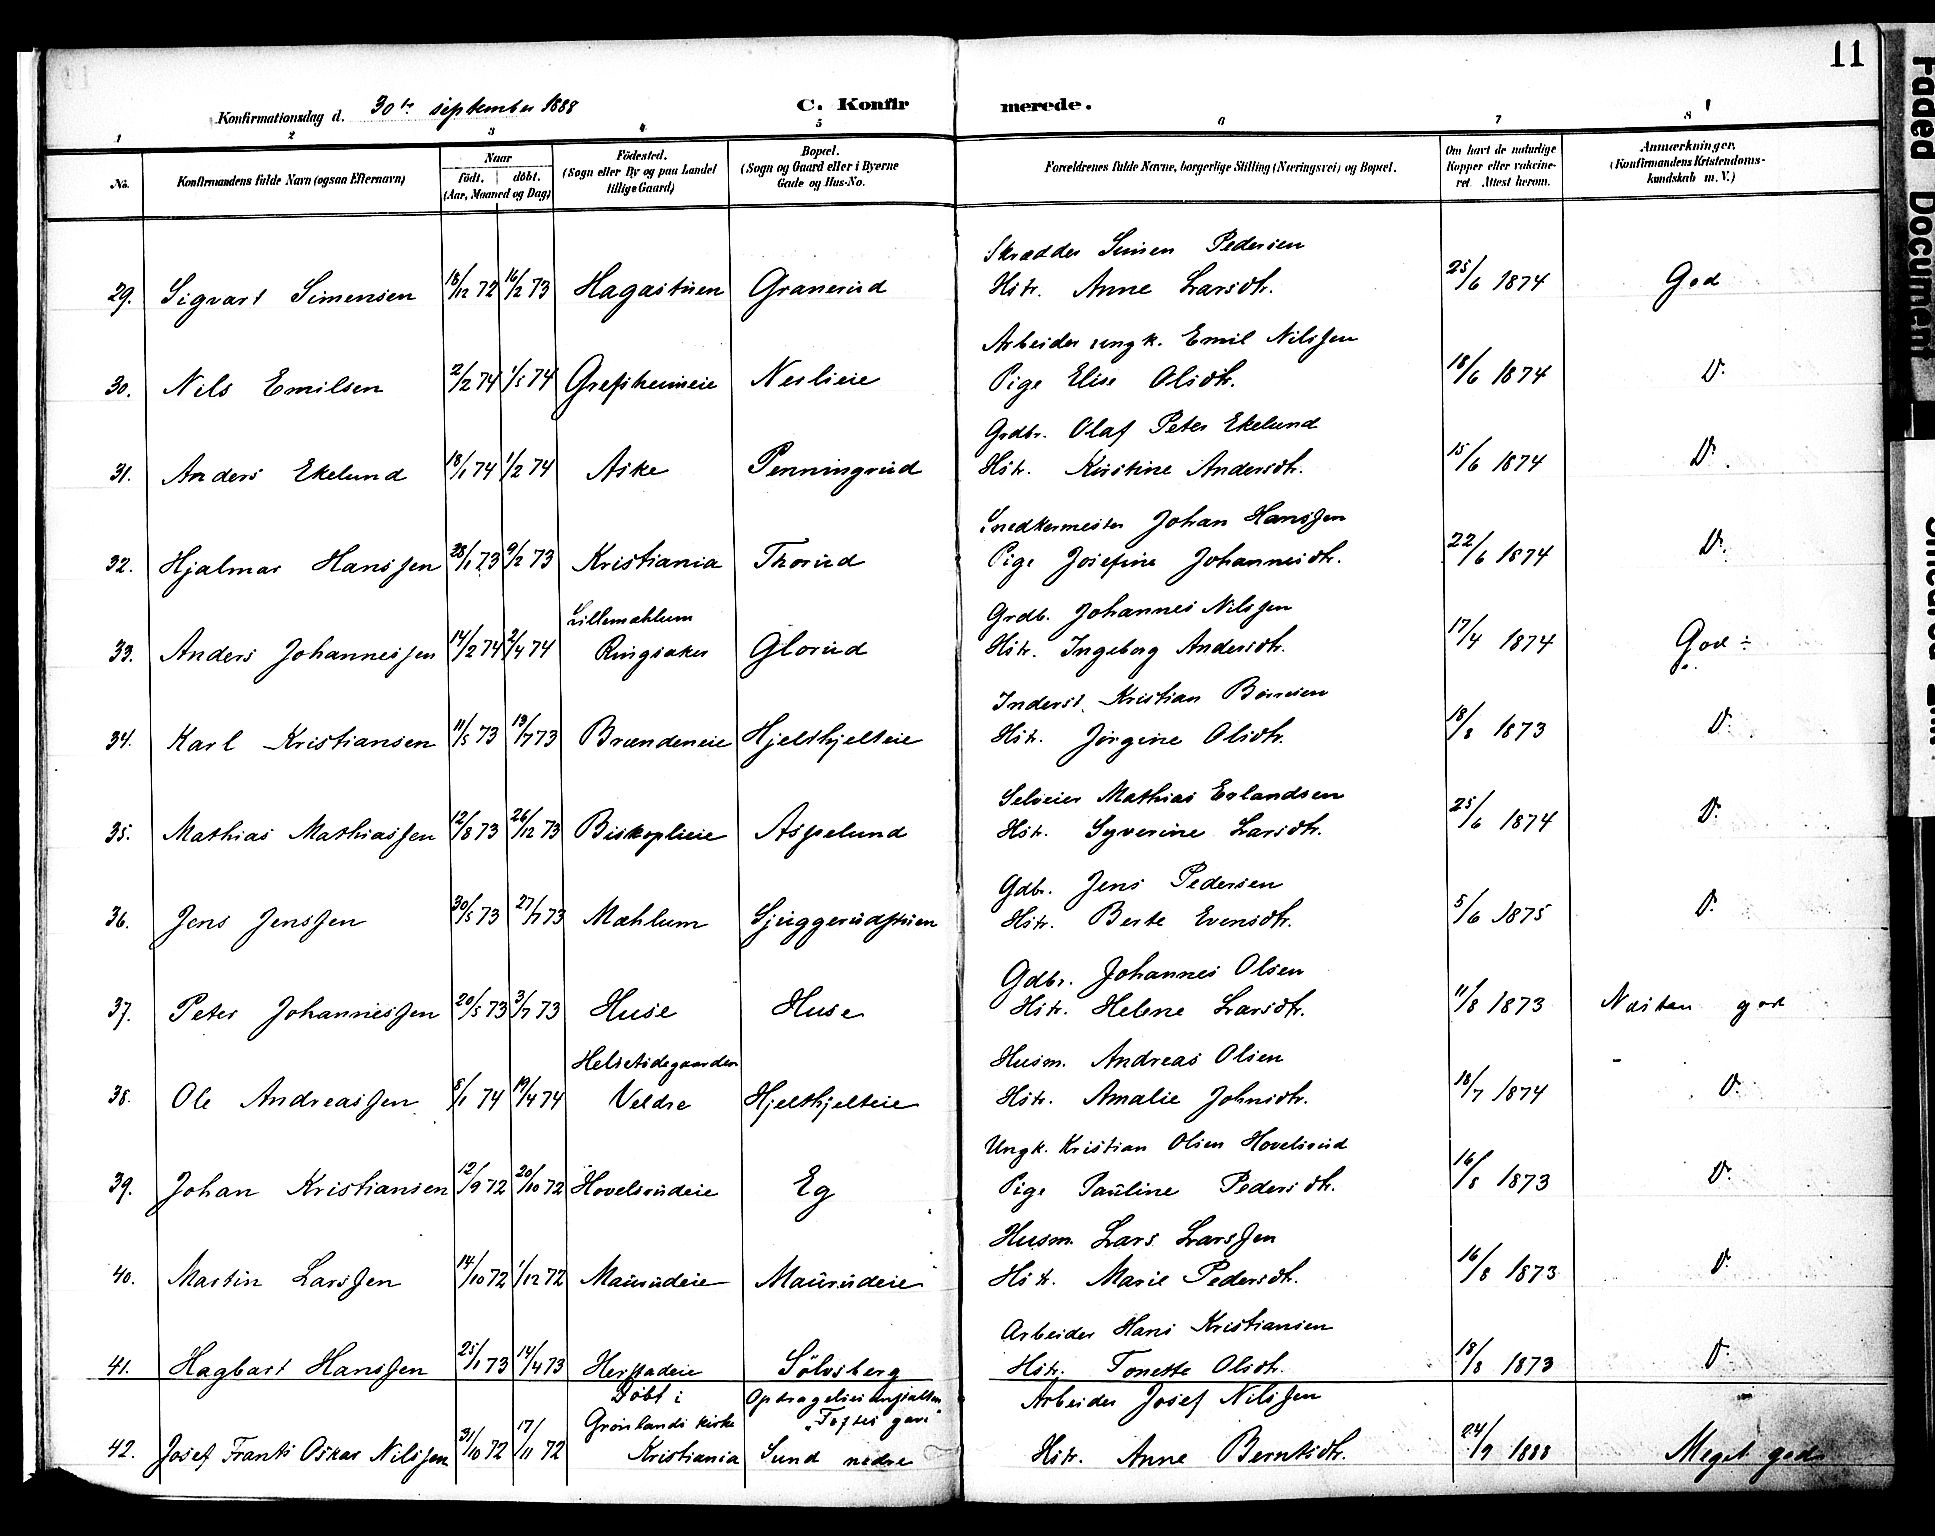 11
Konfirmationsdag d. 30te september 1888 C. Konfirmerede.
1 2 3 4 5 6 7 8
No. Konfirmandens fulde Navn (ogsaa Efternavn) Naar født. døbt. (Aar, Maaned og Dag) Fødested. (Sogn eller By og paa Landet tillige Gaard) Bopæl. (Sogn og Gaard eller i Byerne Gade og Hus-No. Forældrenes fulde Navne, borgerlige Stilling (Næringsvei) og Bopæl. Om havt de naturlige Kopper eller vakcineret. Attest herom. Anmærkninger. (Konfirmandens Kristendomskundskab m. V.)
Skrædder Simen Pedersen
29. Sigvart Simensen 18/12 72 16/2 73 Hagastuen Granerud Hstr. Anne Larsdtr. 25/6 1874 God
Arbeider ungk. Emil Nilssen
30. Nils Emilsen 2/2 74 1/5 74 Grefsheimeie Neslieie Pige Elise Olsdtr. 18/6 1874 D.
Grdbr. Olaf Peter Ekelund
31. Anders Ekelund 18/1 74 1/2 74 Aske Penningrud Hstr. Kristine Andersdtr. 15/6 1874 D.
Snedkermester Johan Hanssen
32. Hjalmar Hanssen 28/1 73 9/2 73 Kristiania Thorud Pige Josefine Johannesdtr. 22/6 1874 D.
Lillemæhlum Grdb. Johannes Nilssen
33. Anders Johannessen 14/2 74 2/4 74 Ringsaker Glorud Hstr. Ingeborg Andersdtr. 17/4 1874 God ÷
Inderst. Kristian Børresen
34. Karl Kristiansen 11/5 73 13/7 73 Brændeneie Hjelshjelteie Hstr. Jørgine Olsdtr. 18/8 1873 D.
Selveier Mathias Erlandsen
35. Mathias Mathiassen 12/8 73 26/12 73 Biskoplieie Aspelund Hstr. Syverine Larsdtr. 25/6 1874 D.
Gdbr. Jens Pedersen
36. Jens Jenssen 30/5 73 27/7 73 Mæhlum Sjuggerudstuen Hstr. Berte Evensdtr. 5/6 1875 D.
Gdbr. Johannes Olsen
37. Peter Johannessen 20/5 73 3/7 73 Huse Huse Hstr. Helene Larsdtr. 11/8 1873 Næsten god
Helsetødegaarden Husm. Andreas Olsen
38. Ole Andreassen 5/1 74 19/4 74 Veldre Hjelshjelteie Hstr. Amalie Johnsdtr. 18/7 1874 D.
Ungk. Kristian Olsen Hovelsrud
39. Johan Kristiansen 12/9 72 20/10 72 Hovelsrudeie Eg Pige Pauline Pedersdtr. 16/8 1873 D.
Husm. Lars Larssen
40. Martin Larssen 14/10 72 1/12 72 Maurudeie Maurudeie Hstr. Marie Pedersdtr. 16/8 1873 D.
Arbeider Hans Kristiansen
41. Hagbart Hanssen 25/1 73 14/4 73 Herstadeie Sølvsberg Hstr. Tonette Olsdtr. 18/8 1873 D.
Døbt i Opdragelsesanstalten Arbeider Josef Nilssen
Grønlands kirke "Toftes gave"
42. Josef Frants Oskar Nilssen 31/10 72 17/11 72 Kristiania Sund nedre Hstr. Anne Berntsdtr. 24/9 1888 Meget god
Faded Document